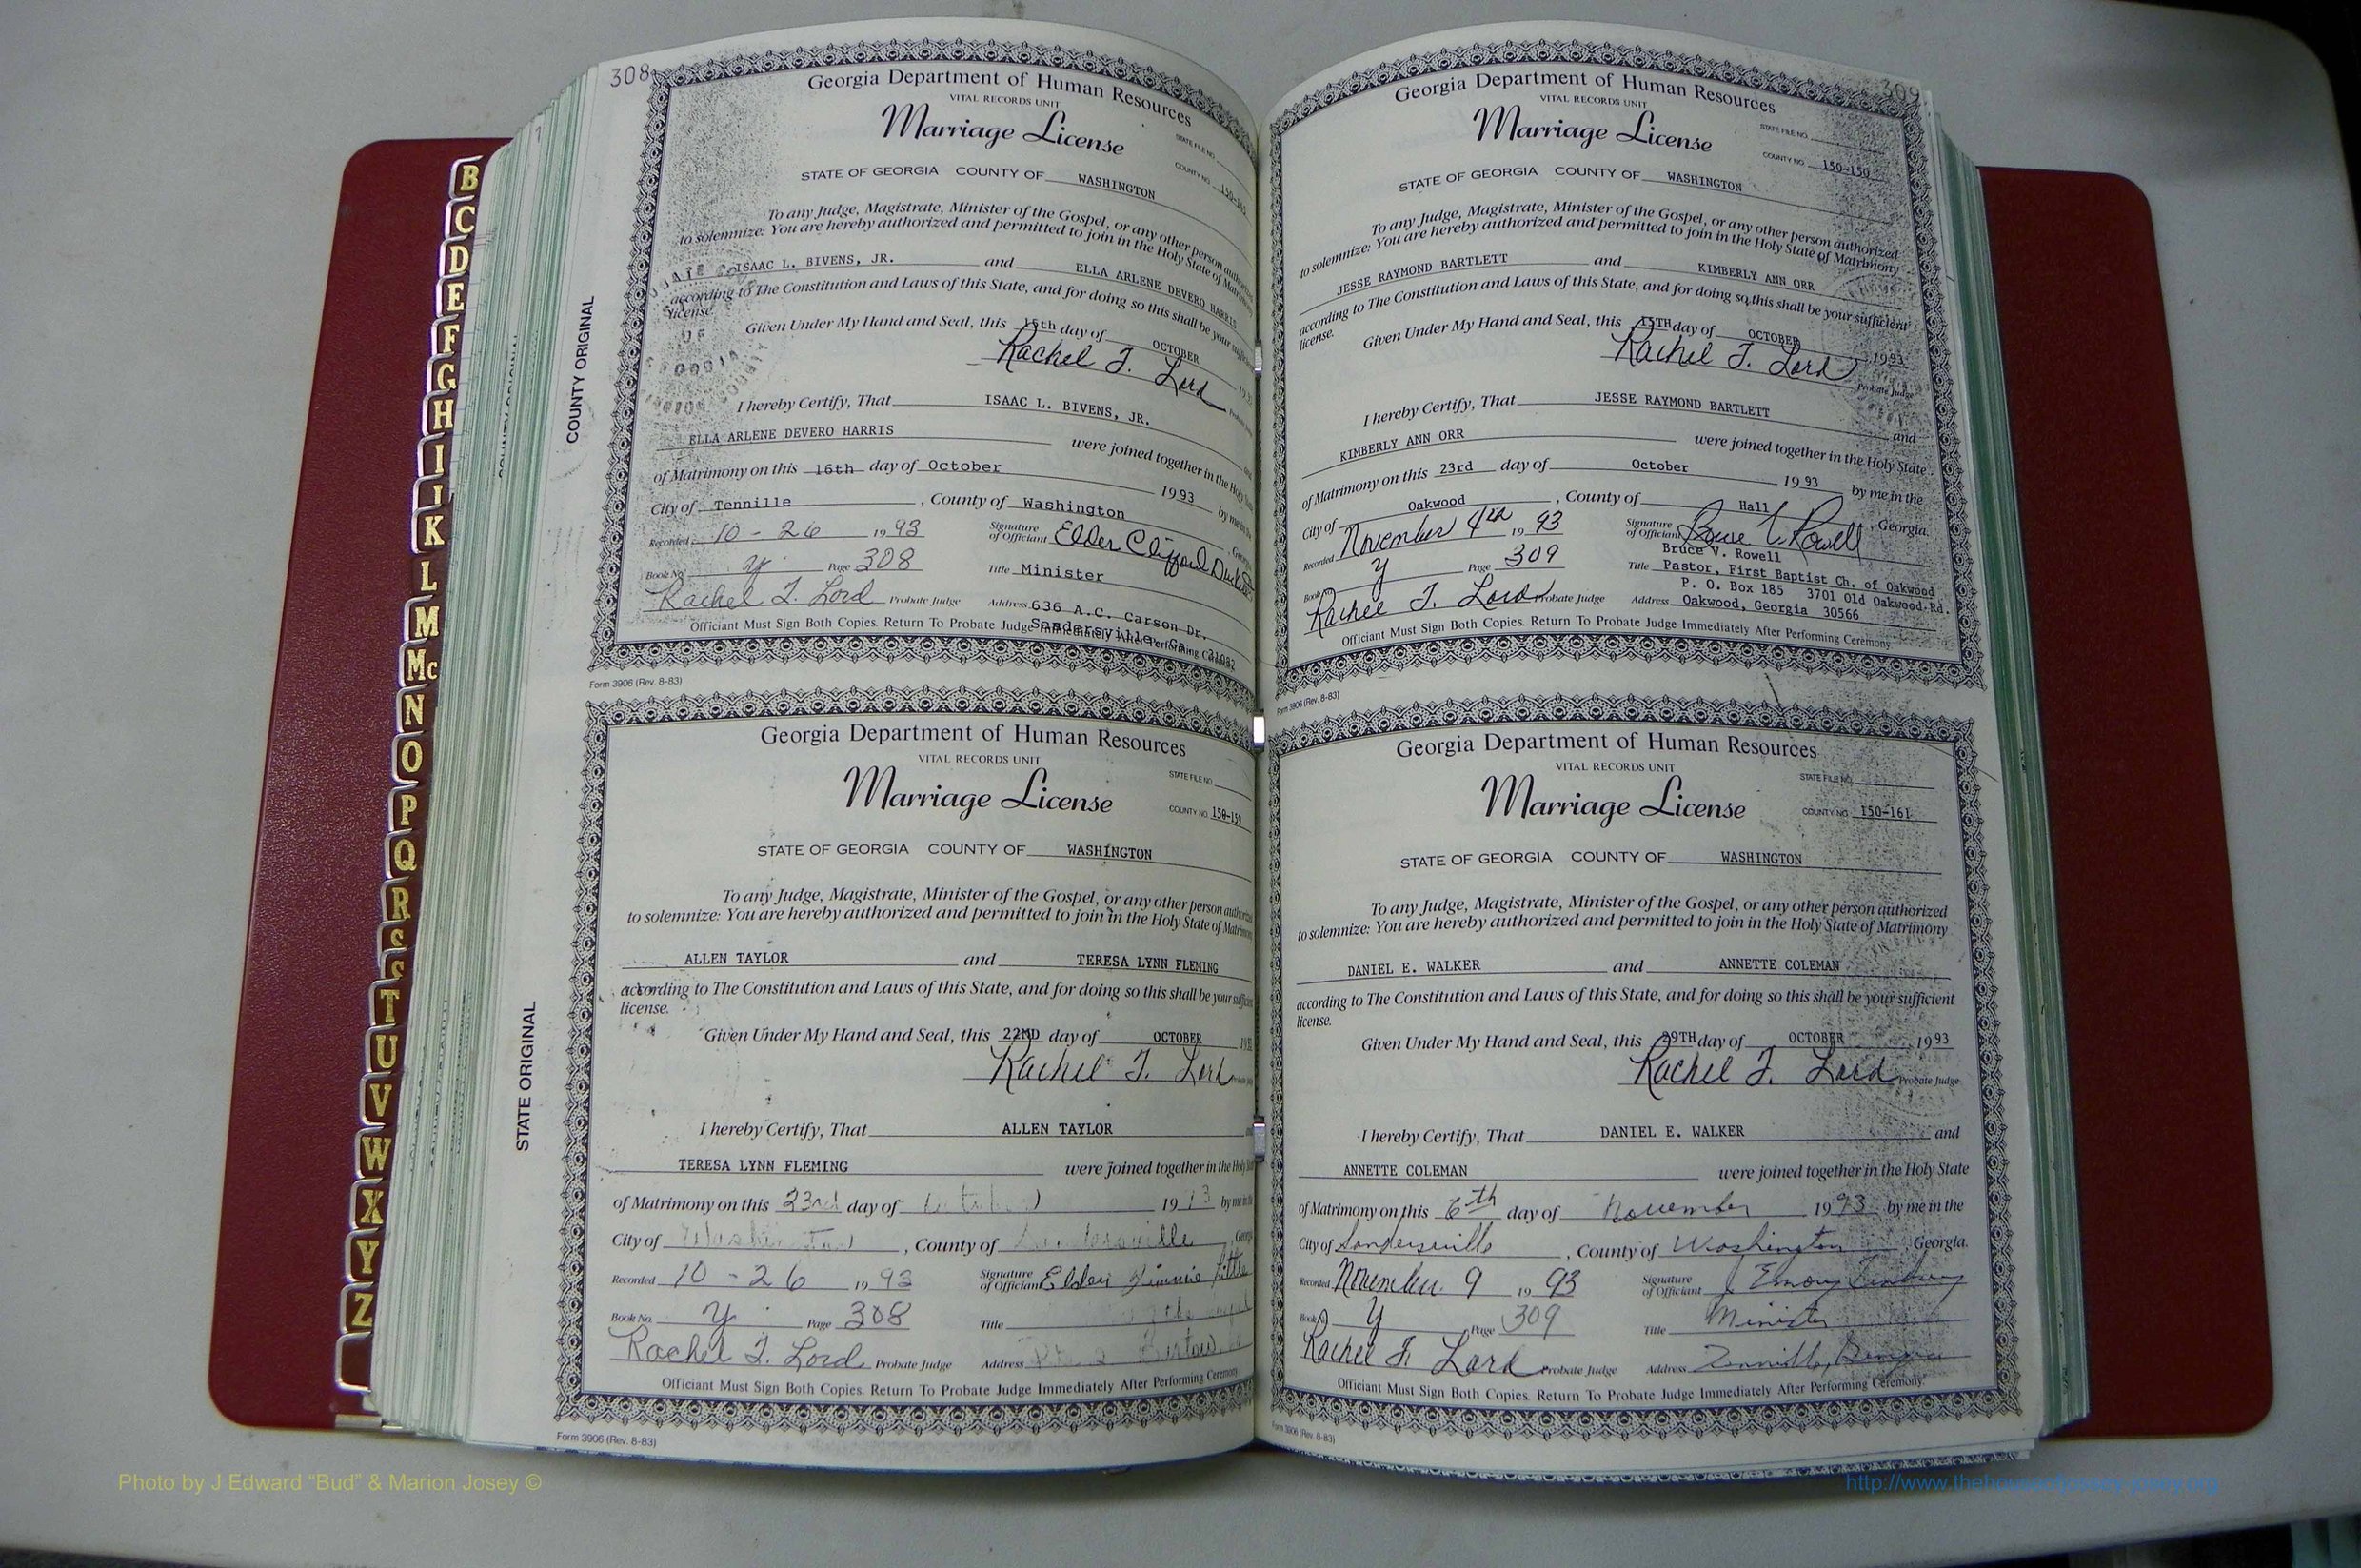 308
Georgia Department of Human Resources
VITAL RECORDS UNIT
Marriage License
STATE FILE NO.
COUNTY NO.
STATE OF GEORGIA COUNTY OF WASHINGTON
To any Judge, Magistrate, Minister of the Gospel, or any other person
to solemnize: You are hereby authorized and permitted to join in the Holy State of
ISAAC L. BIVENS, JR. and ELLA ARLENE DEVERO HARRIS
according to The Constitution and Laws of this State, and for doing so this shall be your
license.
Given Under My Hand and Seal, this day of OCTOBER
Rachel T. Lord
I hereby Certify, That ISAAC L. BIVENS, JR.
ELLA ARLENE DEVERO HARRIS were joined together in the
of Matrimony on this 16th day of October 1993 by me in
City of Tennille, County of Washington
Recorded 10-26 1993 Signature of Officiant Elder Clifford
Book No. Y Page 308 Title Minister
Rachel T. Lord Probate Judge Address 636 A.C. Carson Dr.
Sandersville, Ga. 31082
Officiant Must Sign Both Copies. Return To Probate Judge Immediately After Performing
Form 3906 (Rev. 8-83)
COUNTY ORIGINAL
Georgia Department of Human Resources
VITAL RECORDS UNIT
Marriage License
STATE FILE NO.
COUNTY NO. 150-159
STATE OF GEORGIA COUNTY OF WASHINGTON
To any Judge, Magistrate, Minister of the Gospel, or any other person
to solemnize: You are hereby authorized and permitted to join in the Holy State of
ALLEN TAYLOR and TERESA LYNN FLEMING
according to The Constitution and Laws of this State, and for doing so this shall be your
license.
Given Under My Hand and Seal, this 22ND day of OCTOBER
Rachel T. Lord
I hereby Certify, That ALLEN TAYLOR
TERESA LYNN FLEMING were joined together in the
of Matrimony on this 23rd day of 19 by me in
City of, County of
Recorded 10-26 1993 Signature of Officiant Elder
Book No. Y Page 308 Title
Rachel T. Lord Probate Judge Address
Officiant Must Sign Both Copies. Return To Probate Judge Immediately After Performing Ceremony
Form 3906 (Rev. 8-83)
STATE ORIGINAL
309
Georgia Department of Human Resources
VITAL RECORDS UNIT
Marriage License
STATE FILE NO.
COUNTY NO. 150-150
STATE OF GEORGIA COUNTY OF WASHINGTON
To any Judge, Magistrate, Minister of the Gospel, or any other person authorized
to solemnize: You are hereby authorized and permitted to join in the Holy State of Matrimony
JESSE RAYMOND BARTLETT and KIMBERLY ANN ORR
according to The Constitution and Laws of this State, and for doing so this shall be your sufficient
license.
Given Under My Hand and Seal, this 15TH day of OCTOBER 1993
Rachel T. Lord
Probate Judge
I hereby Certify, That JESSE RAYMOND BARTLETT and
KIMBERLY ANN ORR were joined together in the Holy State
of Matrimony on this 23rd day of October 1993 by me in the
City of Oakwood, County of Hall, Georgia.
Recorded November 4th 1993 Signature of Officiant Bruce V. Rowell
Bruce V. Rowell
Book No. Y Page 309 Title Pastor, First Baptist Ch. of Oakwood
P. O. Box 185 3701 Old Oakwood Rd.
Rachel T. Lord Probate Judge Address Oakwood, Georgia 30566
Officiant Must Sign Both Copies. Return To Probate Judge Immediately After Performing Ceremony
Form 3906 (Rev. 8-83)
Georgia Department of Human Resources
VITAL RECORDS UNIT
Marriage License
STATE FILE NO.
COUNTY NO. 150-161
STATE OF GEORGIA COUNTY OF WASHINGTON
To any Judge, Magistrate, Minister of the Gospel, or any other person authorized
to solemnize: You are hereby authorized and permitted to join in the Holy State of Matrimony
DANIEL E. WALKER and ANNETTE COLEMAN
according to The Constitution and Laws of this State, and for doing so this shall be your sufficient
license.
Given Under My Hand and Seal, this 29TH day of OCTOBER 1993
Rachel T. Lord Probate Judge
I hereby Certify, That DANIEL E. WALKER and
ANNETTE COLEMAN were joined together in the Holy State
of Matrimony on this 6th day of November 1993 by me in the
City of Sandersville, County of Washington, Georgia.
Recorded November 9 1993 Signature of Officiant
Book No. Y Page 309 Title Minister
Rachel T. Lord Probate Judge Address Tennille, Georgia
Officiant Must Sign Both Copies. Return To Probate Judge Immediately After Performing Ceremony.
Form 3906 (Rev. 8-83)
B
C
D
E
F
G
H
I
J
K
L
M
Mc
N
O
P
Q
R
S
T
U
V
W
X
Y
Z
Photo by J Edward “Bud” & Marion Josey ©
http://www.thehouseofjosey-josey.org